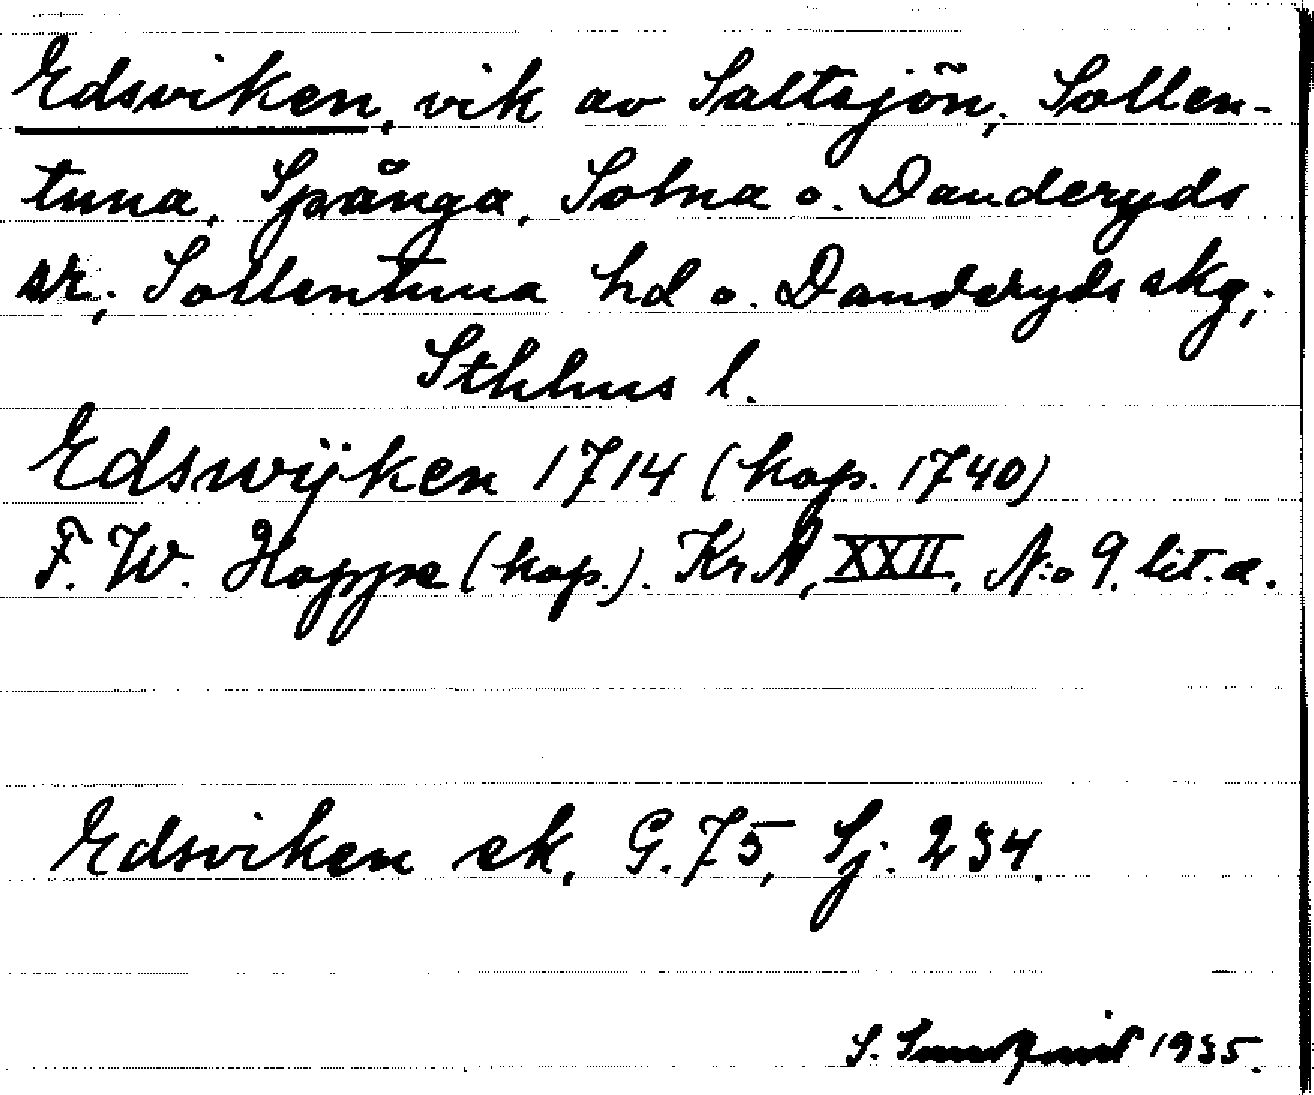 Edsviken, vik av Saltsjön; Sollen-
tuna, Spånga, Solna o. Danderyds
sr; Sollentuna hd o. Danderyds skg;
Sthlms l.
Edswijken 1714 (kop. 1740)
F. W. Hoppe (kop.). KrA, XXII. N:o 9. lit. a.
Edsviken ek, G. 75, Sj. 234.
S. 1935.